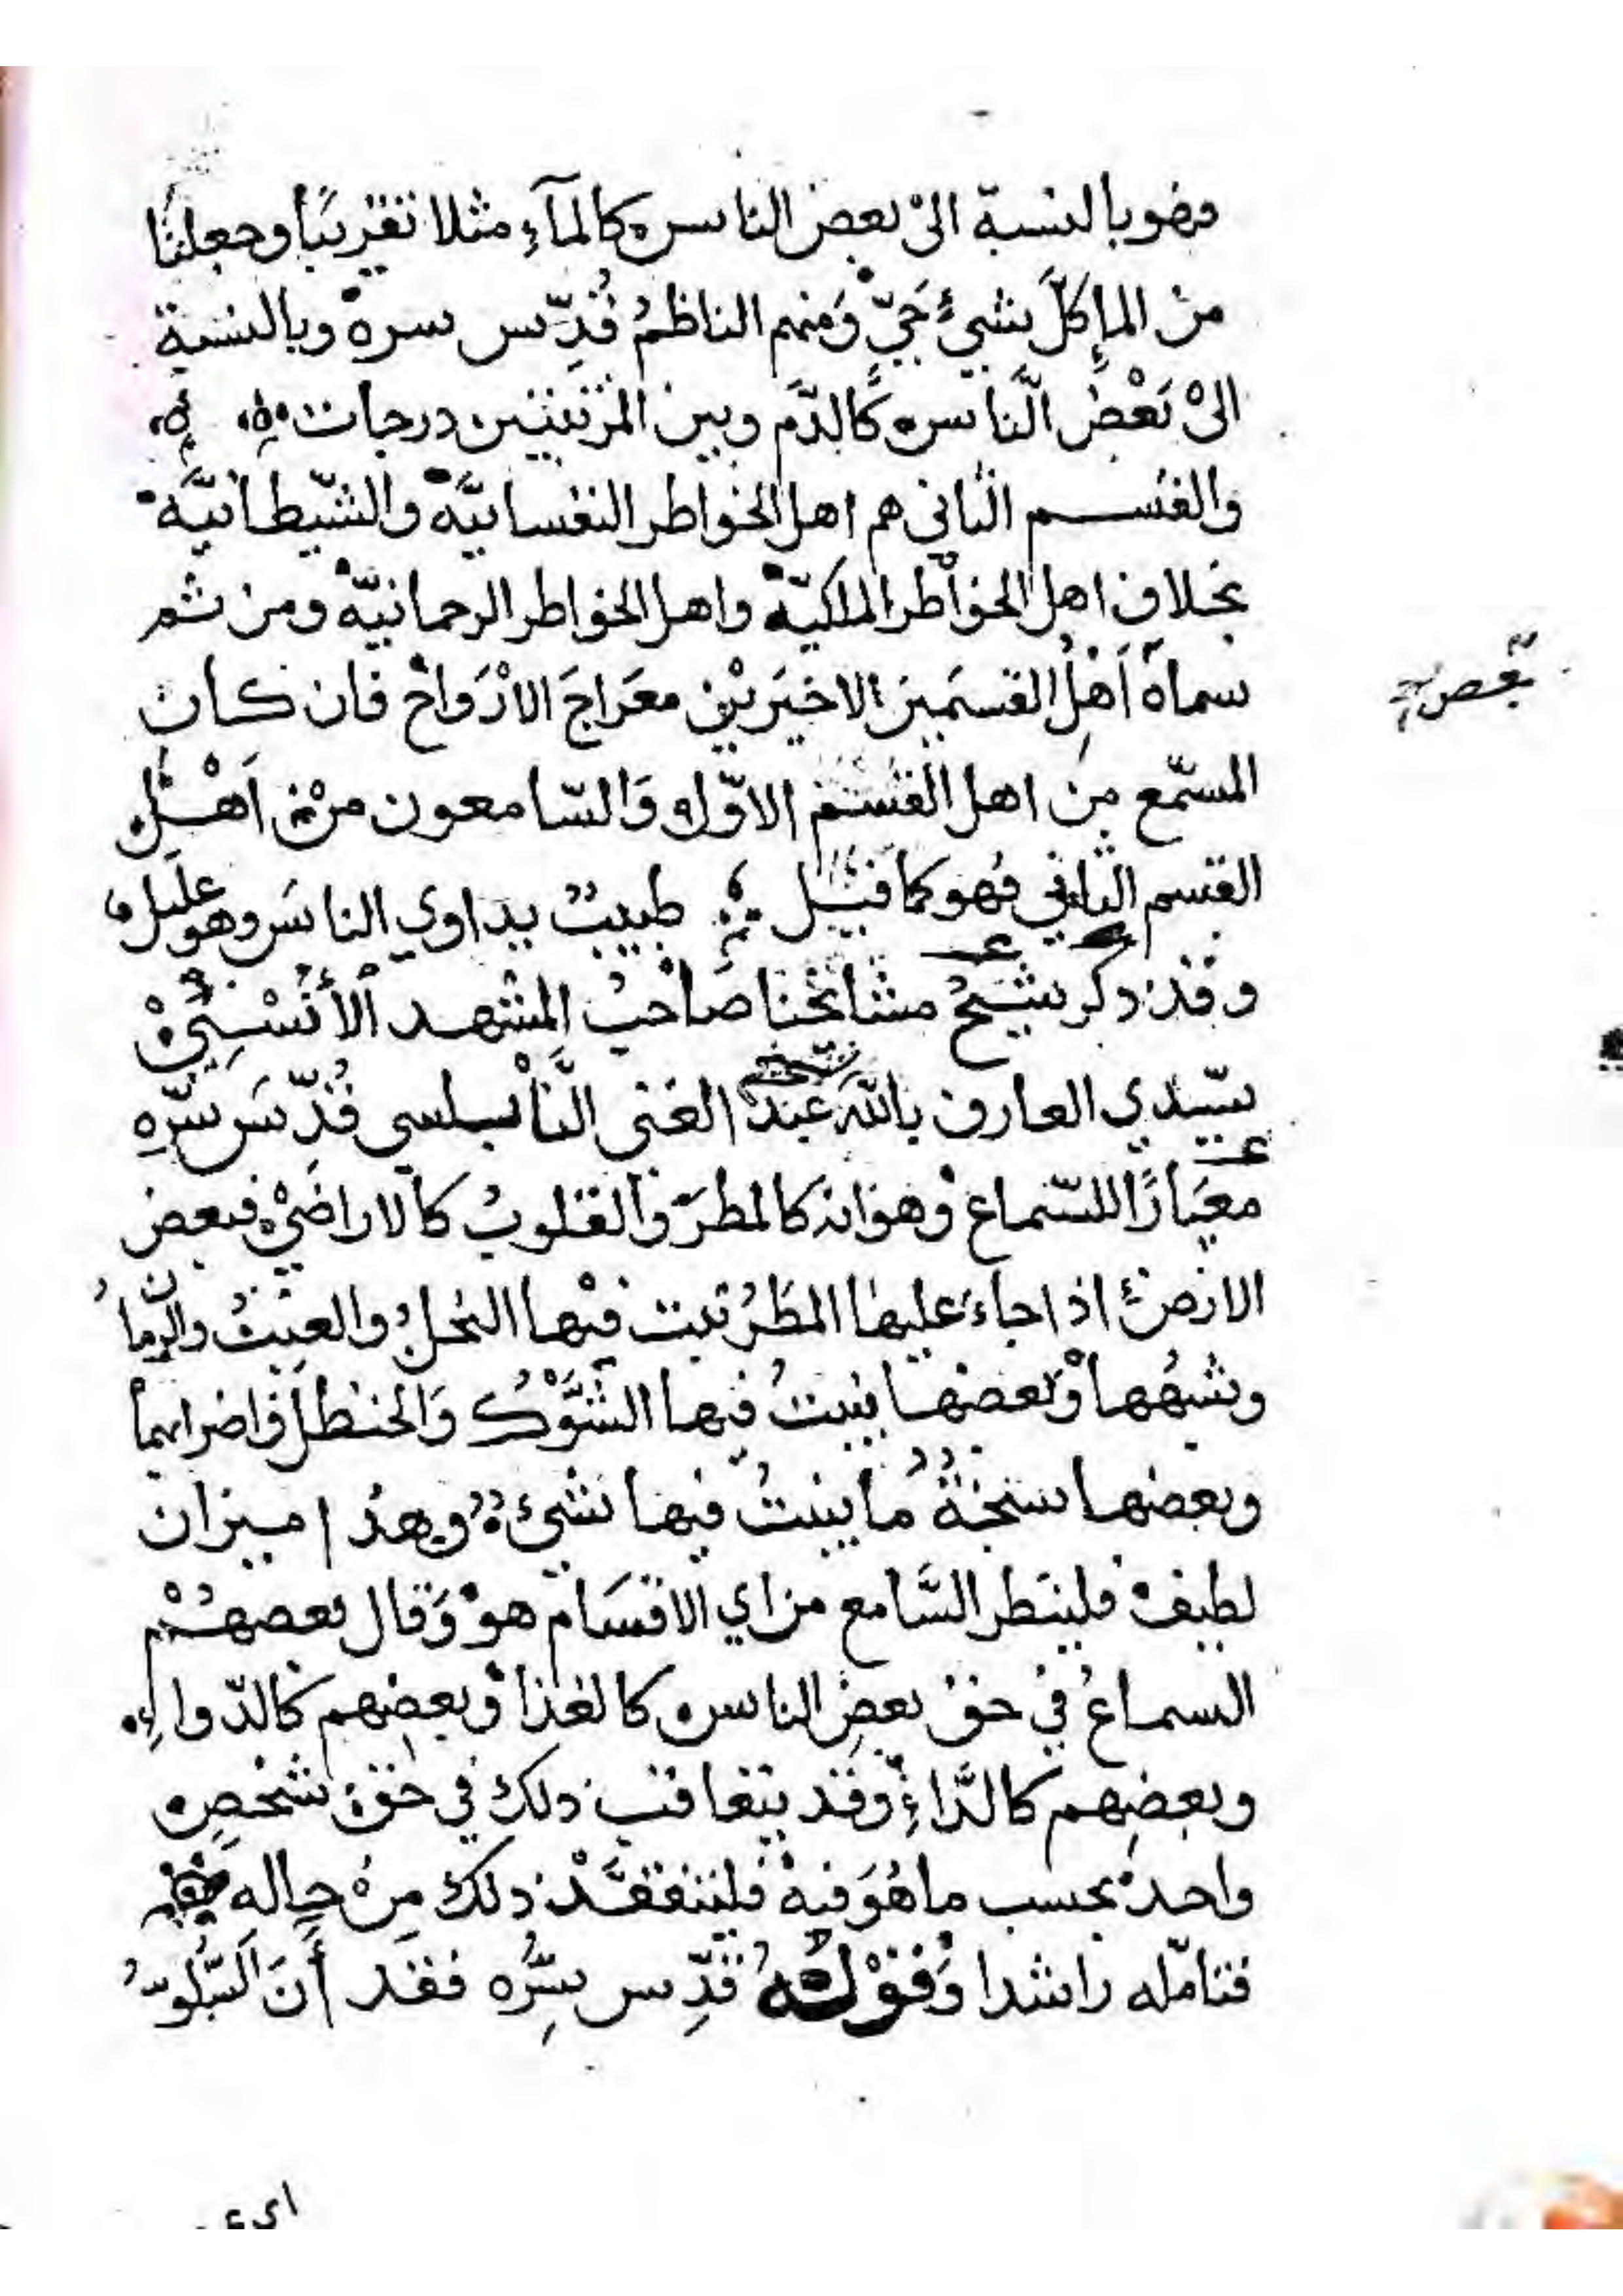 فهو بالنسبة الى بعض الناس كالمآء مثلا تقريبا وجعلنا
من الماء كلّ شيئ حيّ ومنهم الناظم قدّس سره وبالنسبة
الى بعض النّاس كالدّم وبين المرتبتين درجات
والقسم الثاني هم اهل الخواطر النفسانيّة والشّيطانيّة
بخلاف اهل الخواطر الملكيّة واهل الخواطر الرحمانيّة ومن ثم
سماه اهل القسمين الاخيرين معراج الارواح فان كان
المسمّع من اهل القسم الاوّل والسّامعون من اهل
القسم الثاني فهو كما قيل طبيب يداوي الناس وهو عليل
وقد ذكر شيخ مشائخنا صاحب المشهد الأنسيّ
سيّدي العارف بالله الشيخ عبد الغنى النّابلسي قدّس سرّه
معيارًا للسّماع وهو انه كالمطر والقلوب كالاراضي فبعض
الارض اذا جاء عليها المطر نبت فيها النخل والعنب والرّمان
وشبهها وبعضها ينبت فيها الشّوك والحنظل واضرابهما
وبعضها سبخة ما ينبت فيها شيئ وهذا ميزان
لطيف فلينظر السّامع من اي الاقسام هو وقال بعضهم
السماع في حق بعض الناس كالغذا وبعضهم كالدّواء
وبعضهم كالدّاء وقد يتعاقب ذلك في حق شخص
واحد بحسب ما هو فيه فليتفقّد ذلك من حاله
فتامّله راشدا وقوله قدّس سرّه فقد أن
اي